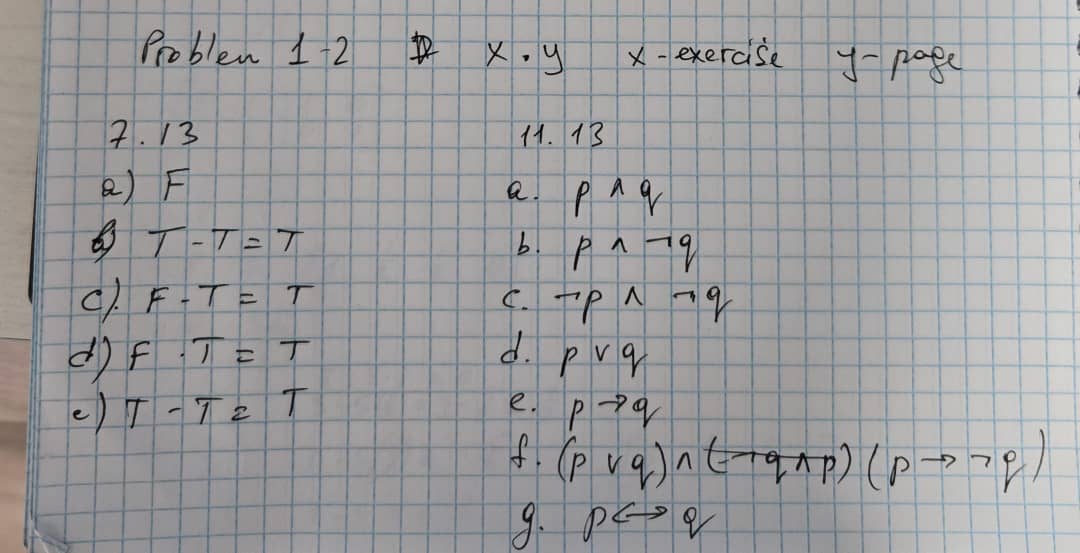 Problem 1-2 x.y x-exercise y-page
7.13
a) F
b) T-T=T
c). F-T= T
d) F .T= T
e) T-T= T
11. 13
a. p ∧ q
b. p ∧ ¬q
c. ¬p ∧ ¬q
d. p ∨ q
e. p→q
f. (p ∨ q) ∧ (¬q∧p) (p → ¬q)
g. p↔q